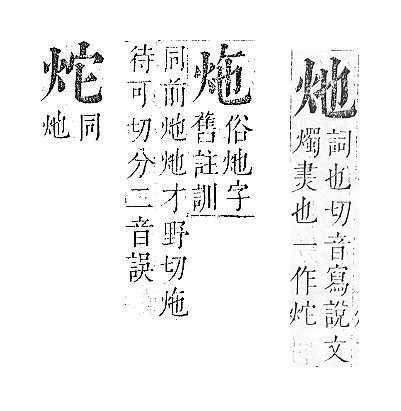 灺
詞也切音寫說文
燭也一作炨
炧
俗灺字
舊註訓
同前炧灺才野切炧
待可切分二音誤
炨
同
灺